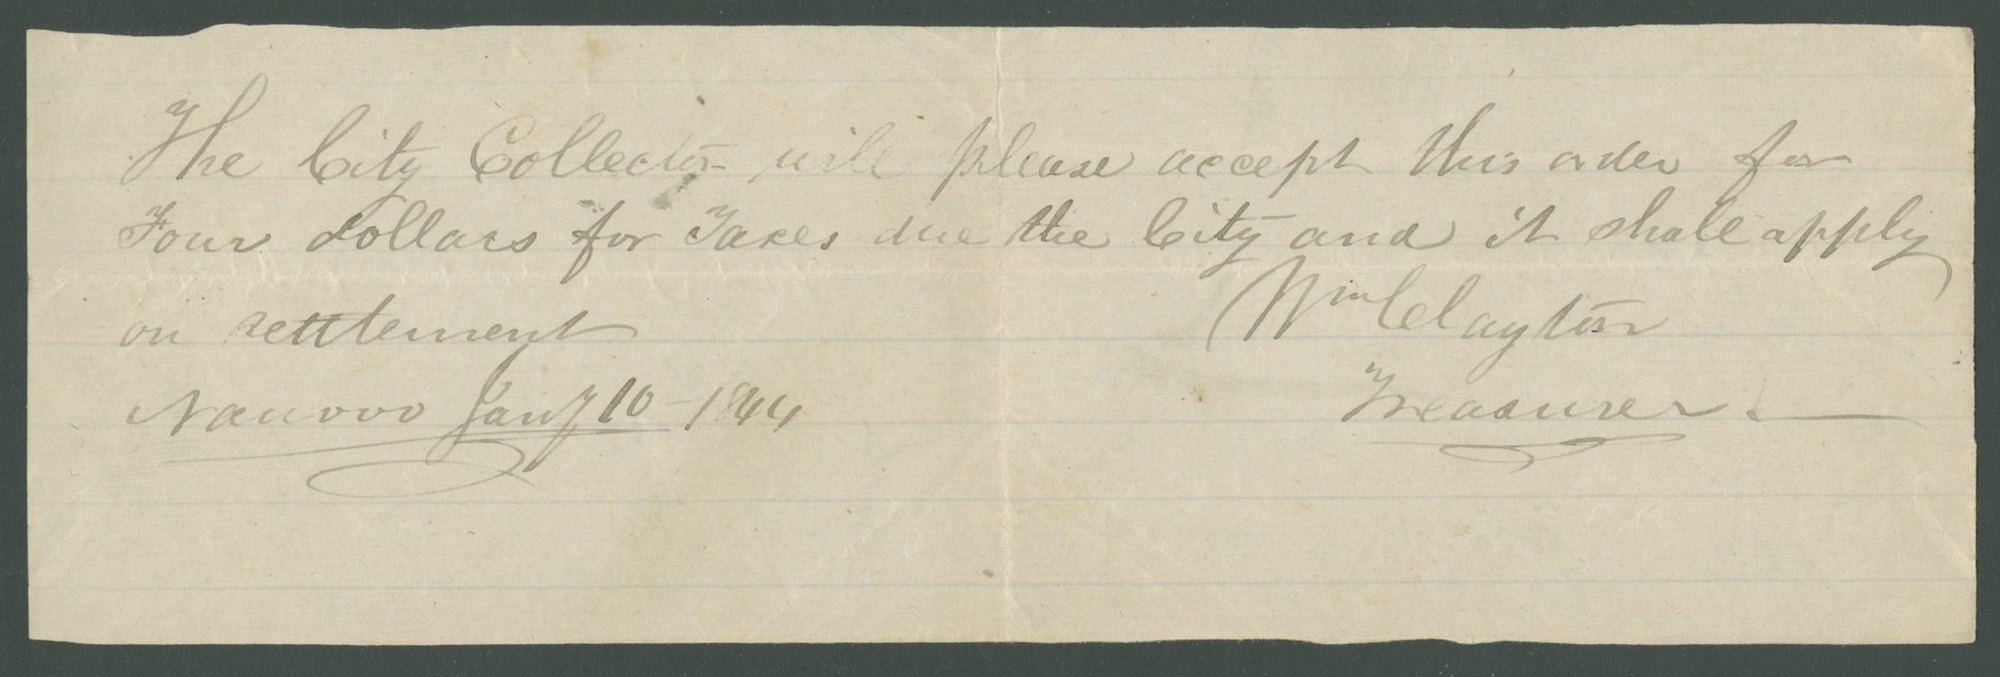 The City Collector will please accept this order for
Four dollars for Taxes due the City and it shall apply
on settlement
Wm Clayton
Nauvoo Jany 10 - 1844
Treasurer.